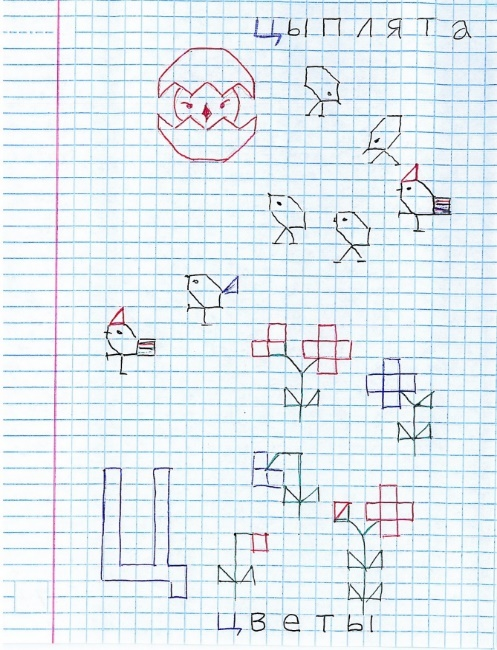 Цыплята
Ц
цветы